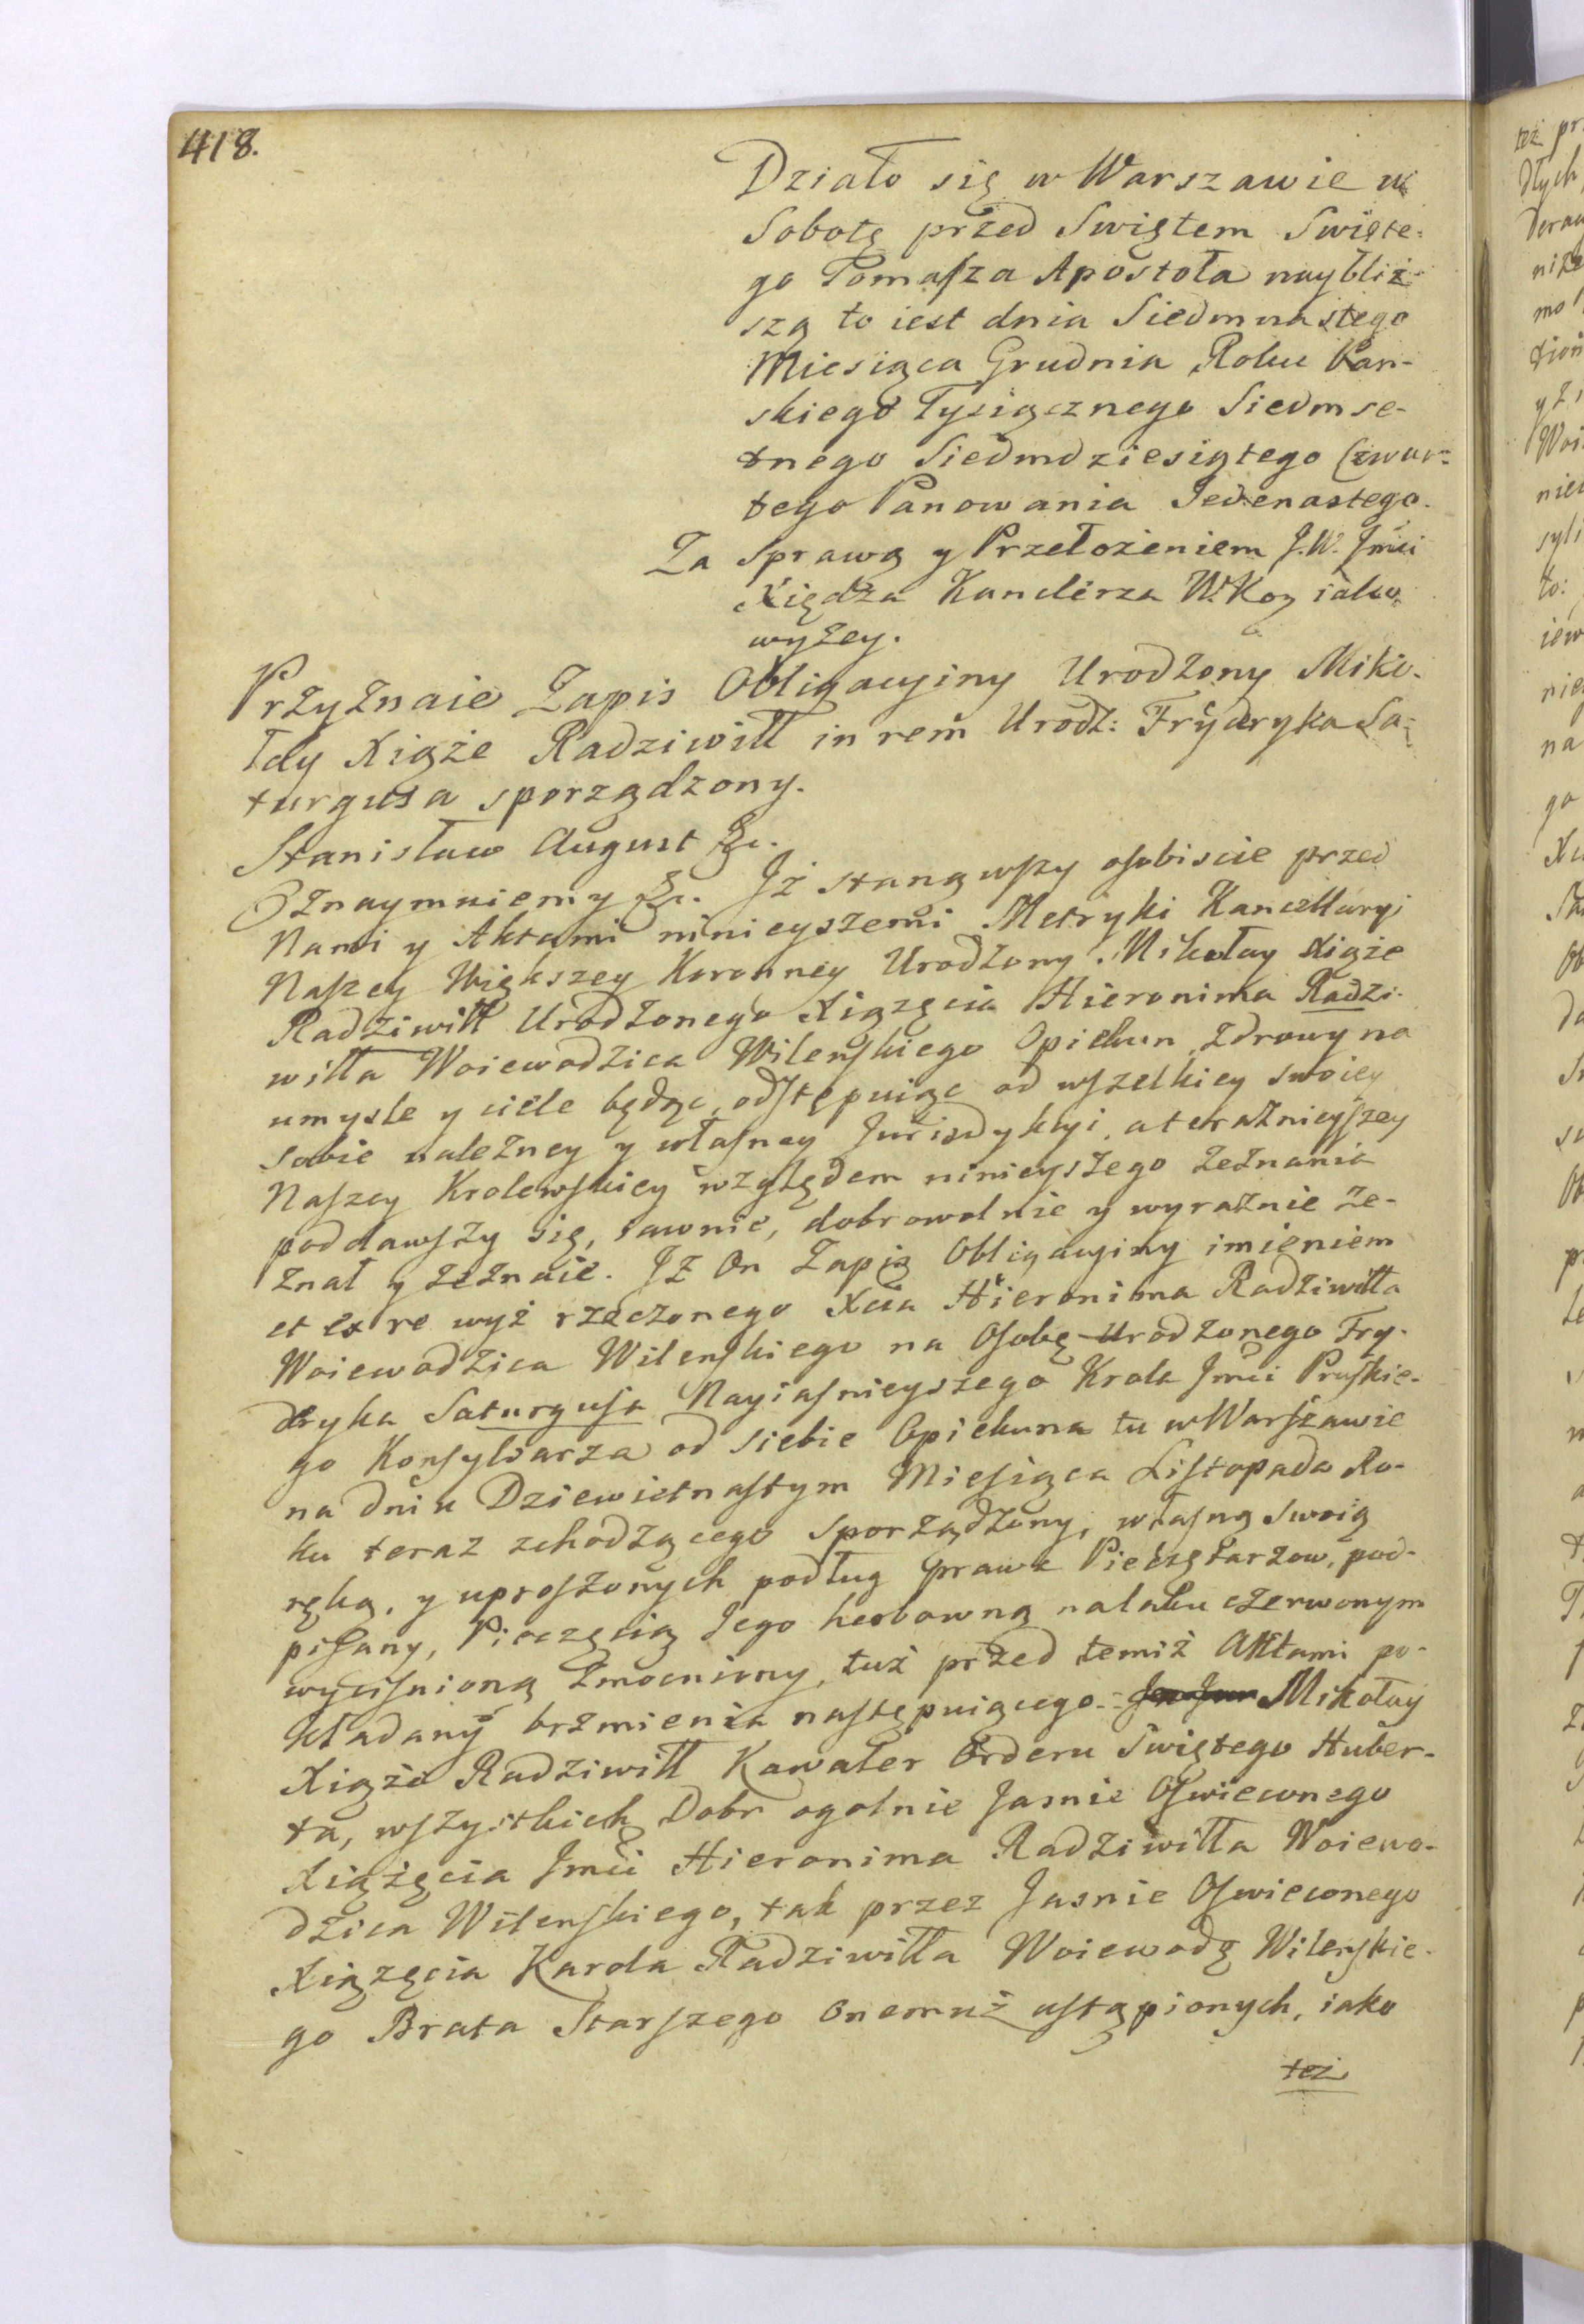 418.
Działo się w Warszawie w
Sobotę przed Swiętem Swięte-
go Tomasza Apostoła nayбliż-
szą to iest dnia Siedmnastego
Miesiąca Grudnia Roku Pan-
skiego Tysiącznego Siedmse-
tnego Siedmdziesiątego Czwar-
tego Panowania Jedenastego.
Za Sprawą y Przełożeniem J.W. Jmci
Xiędza Kanclerza W. Kor iako
wyżey.
Przyznaie Zapis Obligacyiny Urodzony Miko-
łay Xiąże Radziwiłł in rem Urodz: Fryderyka Sa-
turgusa sporządzony.
Stanisław August &c.
Oznaymuiemy &c. Jż stanąwszy osobiscie przed
Nami y Aktami ninieyszemi Metryki Kancellaryi
Naszey Większey Koronney Urodzony Mikołay Xiąże
Radziwiłł Urodzonego Xiążęcia Hieronima Radzi-
wiłła Woiewodzica Wilenskiego Opiekun, zdrowy na
umysle y ciele będąc, odstępuiąc od wszelkiey swoiey
sobie należney y własney Jurisdykcyi, a teraznieyszey
Naszey Krolewskiey względem ninieyszego zeznania
poddawszy się, iawnie, dobrowolnie y wyraźnie ze-
znał y zeznaie. Jż On Zapis Obligacyiny imieniem
et ex re wyż rzeczonego Xcia Hieronima Radziwiłła
Woiewodzica Wilenskiego na Osobę Urodzonego Fry-
deryka Saturgusa Nayiasnieyszego Krola Jmci Pruskie-
go Konsyliarza od siebie Opiekuna tu w Warszawie
na dniu Dziewietnastym Miesiąca Listopada Ro-
ku teraz zchodzącego sporządzony, własną swoią
ręką, y uproszonych podług prawa Pieczętarzow, pod-
pisany, Pieczęcią Jego herbowną na laku czerwonym
wycisnioną zmocniony, tuż przed temiż Aktami po-
kładany brzmienia następuiącego. Mikołay
Xiąże Radziwiłł Kawaler Orderu Swiętego Huber-
ta, wszystkich Dobr ogolnie Jasnie Oswieconego
Xiążęcia Jmci Hieronima Radziwiłła Woiewo-
dzica Wilenskiego, tak przez Jasnie Oswieconego
Xiążęcia Karola Radziwiłła Woiewodę Wilenskie-
go Brata Starszego onemuż ustąpionych, iako
też